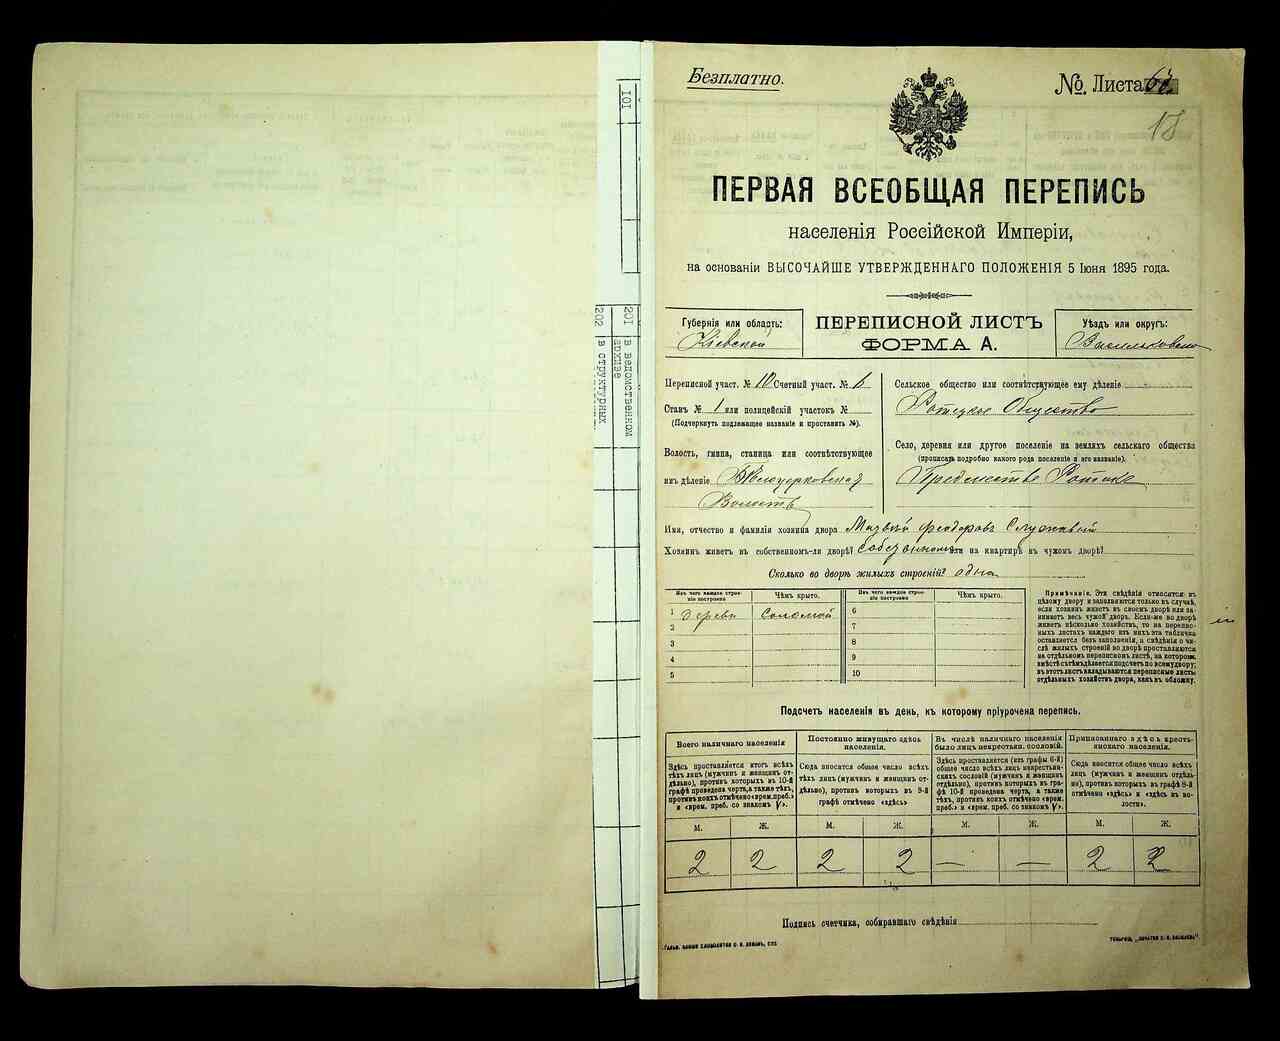 Безплатно.
№. Листа 63.
18
ПЕРВАЯ ВСЕОБЩАЯ ПЕРЕПИСЬ
населенія Россійской Имперіи,
на основаніи ВЫСОЧАЙШЕ УТВЕРЖДЕННАГО ПОЛОЖЕНІЯ 5 Іюня 1895 года.
Губернія или область:
Кіевской
ПЕРЕПИСНОЙ ЛИСТЪ
ФОРМА А.
Уѣздъ или округъ:
Васильковско
Переписной участ. № 10 Счетный участ. № 6
Станъ № 1 или полицейскій участокъ №
(Подчеркнуть подлежащее названіе и проставить №).
Волость, гмина, станица или соотвѣтствующее
имъ дѣленіе Бѣлоцерковская
Волость
Сельское общество или соотвѣтствующее ему дѣленіе
Ротское Общество
Село, деревня или другое поселеніе на земляхъ сельскаго общества
(прописать подробно какого рода поселеніе и его названіе).
Предмѣстье Ротокъ
Имя, отчество и фамилія хозяина двора Матвѣй Феодоровъ
Хозяинъ живетъ въ собственномъ-ли дворѣ? собственномъ или на квартирѣ въ чужомъ дворѣ?
Сколько во дворѣ жилыхъ строеній? одна
Изъ чего каждое строеніе построено
Чѣмъ крыто.
Изъ чего каждое строеніе построено
Чѣмъ крыто.
1 дерева Соломой 6
2 7
3 8
4 9
5 10
Примѣчаніе. Эти свѣдѣнія относятся къ
цѣлому двору и заполняются только въ случаѣ,
если хозяинъ живетъ въ своемъ дворѣ или за-
нимаетъ весь чужой дворъ. Если-же во дворѣ
живетъ нѣсколько хозяйствъ, то на перепис-
ныхъ листахъ каждаго изъ нихъ эта табличка
оставляется безъ заполненія, а свѣдѣнія о чи-
слѣ жилыхъ строеній во дворѣ проставляются
на отдѣльномъ переписномъ листѣ, на которомъ
вмѣстѣ съ тѣмъ дѣлается подсчетъ по всему двору;
въ этотъ листъ вкладываются переписные листы
отдѣльныхъ хозяйствъ двора, какъ въ обложку.
Подсчетъ населенія въ день, къ которому пріурочена перепись.
Всего наличнаго населенія
Здѣсь проставляется итогъ всѣхъ
тѣхъ лицъ (мужчинъ и женщинъ от-
дѣльно), противъ которыхъ въ 10-й
графѣ проведена черта, а также тѣхъ,
противъ коихъ отмѣчено «врем. преб.»
и «врем. преб. со знакомъ V».
Постоянно живущаго здѣсь
населенія.
Сюда вносится общее число всѣхъ
тѣхъ лицъ (мужчинъ и женщинъ от-
дѣльно), противъ которыхъ въ 9-й
графѣ отмѣчено «здѣсь»
Въ числѣ наличнаго населенія
было лицъ некрестьян. сословій.
Здѣсь проставляется (изъ графы 6-й)
общее число всѣхъ лицъ некрестьян-
скихъ сословій (мужчинъ и женщинъ
отдѣльно), противъ которыхъ въ
графѣ 10-й проведена черта, а также
тѣхъ, противъ коихъ отмѣчено «врем.
преб.» и «врем. преб. со знакомъ V».
Приписаннаго здѣсь кресть-
янскаго населенія.
Сюда вносится общее число всѣхъ
лицъ (мужчинъ и женщинъ отдѣль-
но), противъ которыхъ въ графѣ 8-й
отмѣчено «здѣсь» и «здѣсь въ во-
лости».
М. Ж. М. Ж. М. Ж. М. Ж.
2 2 2 2 — — 2 2
Подпись счетчика, собиравшаго свѣдѣнія
101
201 в ведомственном
архиве
202 в структурных